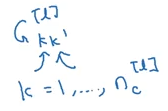 G^{[l]}_{kk'}
k = 1, ..., n_c^{[l]}